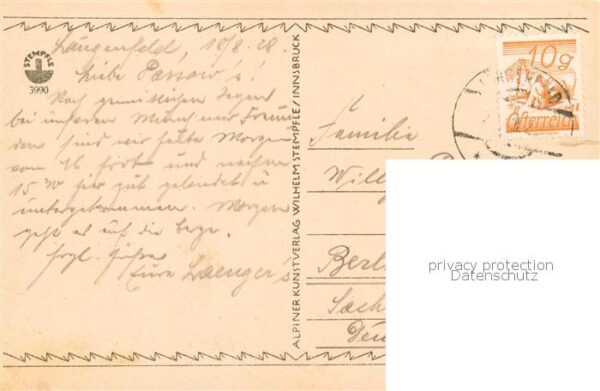 Längenfeld, 18/8.28.
Liebe Passow's!
Nach gemütlichen Tagen
bei unseren Münchner Freun
den sind wir heute Morgen
vom 16 fort und
15 30 hier gut gelandet u
untergekommen. Morgen
geht es auf die Berge.
Hrzl. Grüße
Eure Laenger's
STEMPFLE
3990
ALPINER KUNSTVERLAG WILHELM STEMPFLE / INNSBRUCK
10g
Österreich
Familie
Willy
Berl
Sach
Deu
privacy protection
Datenschutz